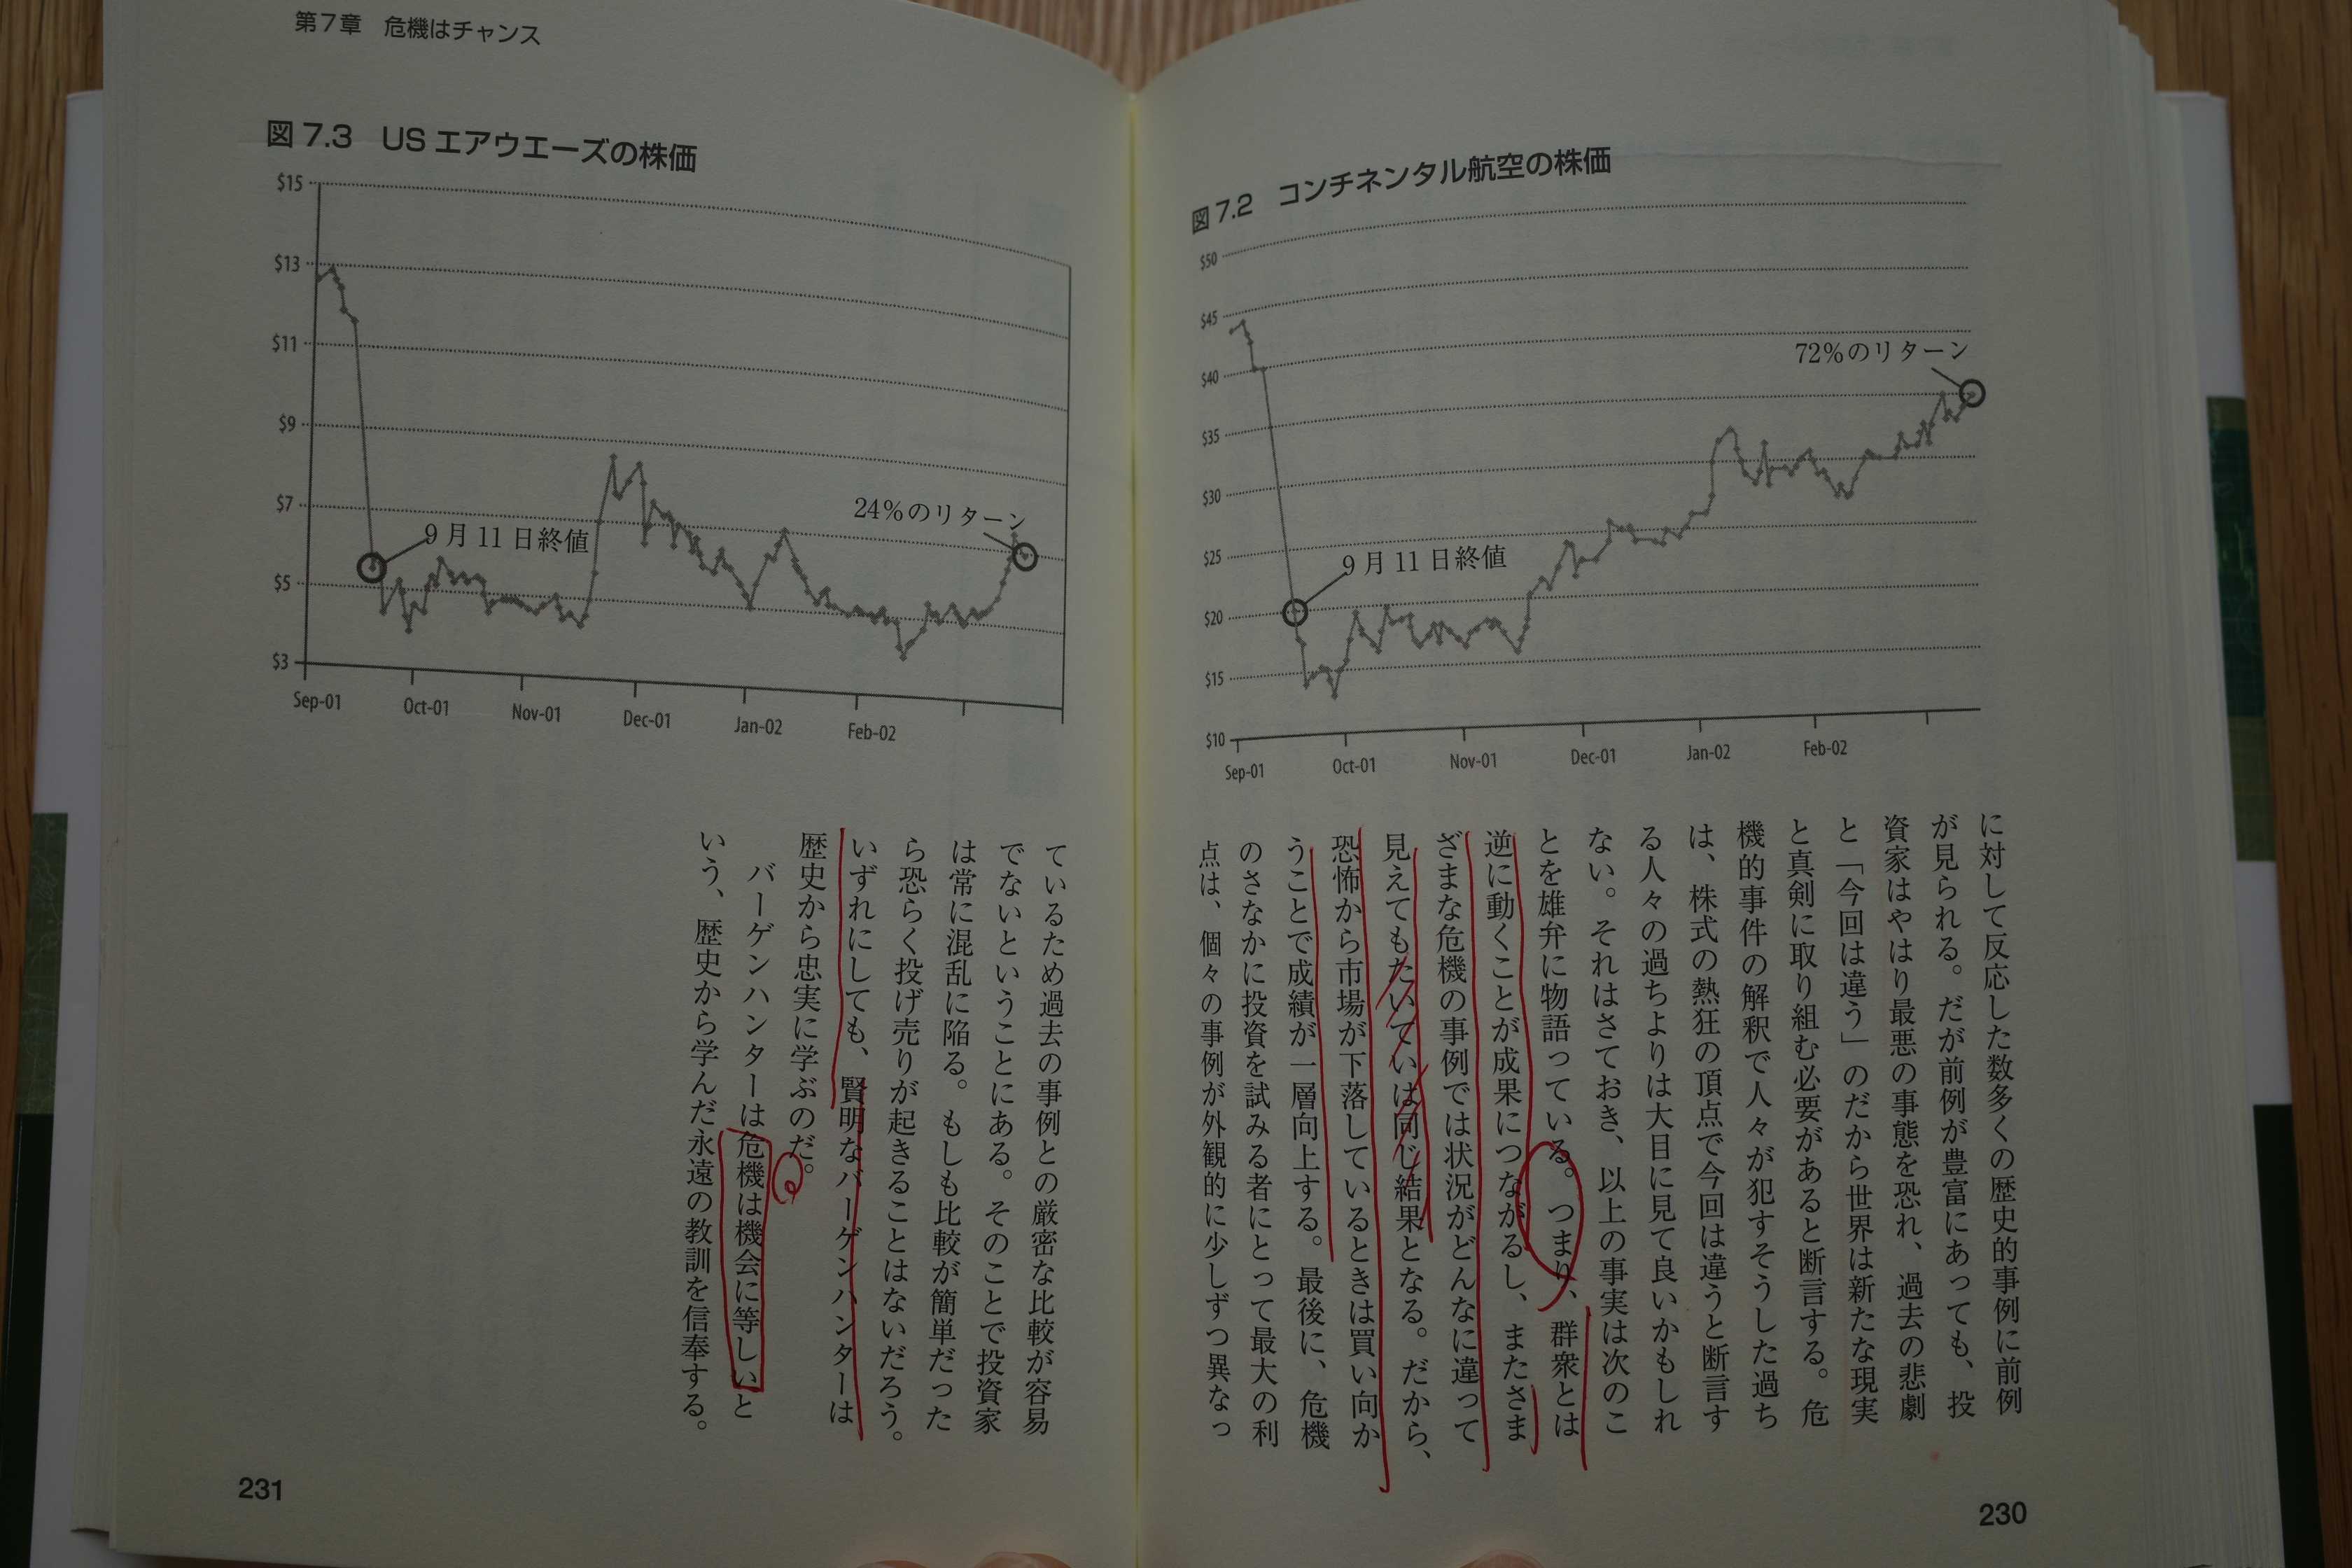 図7.2 コンチネンタル航空の株価
$50
$45
$40
$35
$30
$25
$20
$15
$10
Sep-01
Oct-01
Nov-01
Dec-01
Jan-02
Feb-02
9月11日終値
72%のリターン
に対して反応した数多くの歴史的事例に前例
が見られる。だが前例が豊富にあっても、投
資家はやはり最悪の事態を恐れ、過去の悲劇
と「今回は違う」のだから世界は新たな現実
と真剣に取り組む必要があると断言する。危
機的事件の解釈で人々が犯すそうした過ち
は、株式の熱狂の頂点で今回は違うと断言す
る人々の過ちよりは大目に見て良いかもしれ
ない。それはさておき、以上の事実は次のこ
とを雄弁に物語っている。つまり、群衆とは
逆に動くことが成果につながるし、またさま
ざまな危機の事例では状況がどんなに違って
見えてもたいていは同じ結果となる。だから、
恐怖から市場が下落しているときは買い向か
うことで成績が一層向上する。最後に、危機
のさなかに投資を試みる者にとって最大の利
点は、個々の事例が外観的に少しずつ異なっ
230
第7章 危機はチャンス
図7.3 USエアウエーズの株価
$15
$13
$11
$9
$7
$5
$3
Sep-01
Oct-01
Nov-01
Dec-01
Jan-02
Feb-02
9月11日終値
24%のリターン
ているため過去の事例との厳密な比較が容易
でないということにある。そのことで投資家
は常に混乱に陥る。もしも比較が簡単だった
ら恐らく投げ売りが起きることはないだろう。
いずれにしても、賢明なバーゲンハンターは
歴史から忠実に学ぶのだ。
バーゲンハンターは危機は機会に等しいと
いう、歴史から学んだ永遠の教訓を信奉する。
231